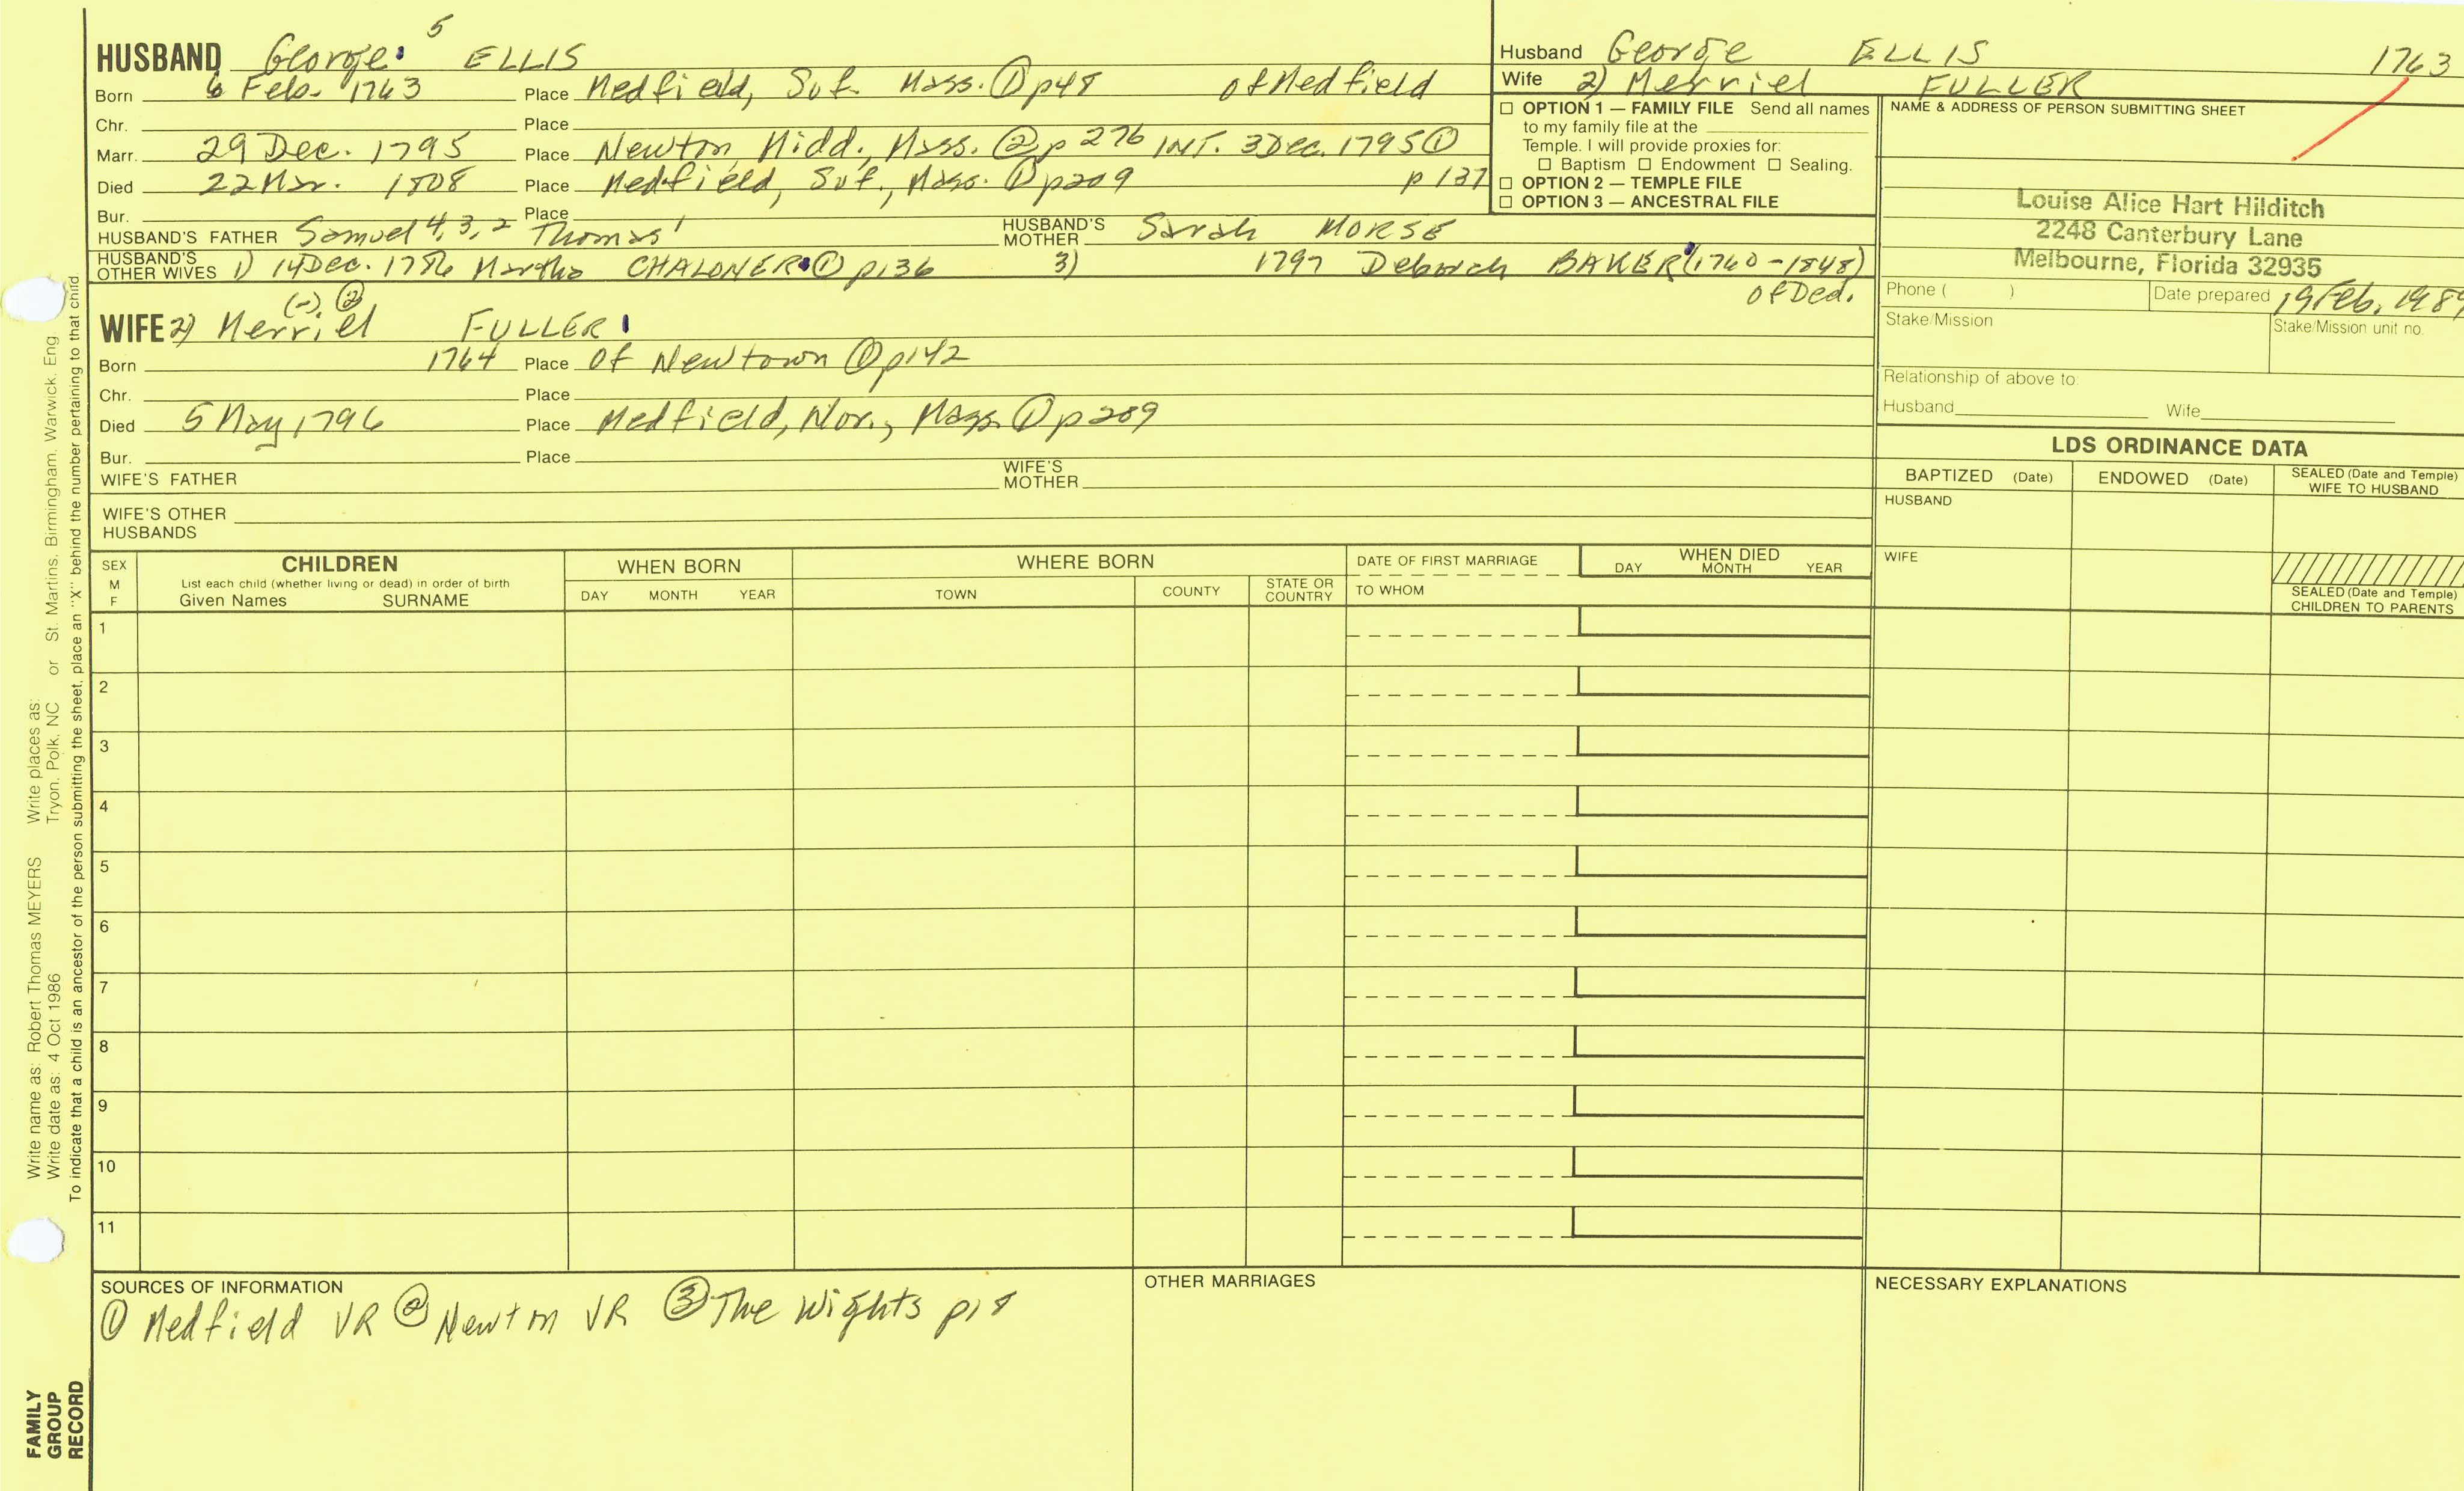 HUSBAND George 5 ELLIS
Born 6 Feb. 1763 Place Medfield, Suf. Mass. ① p48 of Medfield
Chr. Place
Marr. 29 Dec. 1795 Place Newton, Midd., Mass. ② p 276 INT. 3 Dec. 1795 ①
Died 22 Mar. 1808 Place Medfield, Suf., Mass. ① p209 p 137
Bur. Place
HUSBAND'S FATHER Samuel 4, 3, 2 Thomas 1 HUSBAND'S MOTHER Sarah MORSE
HUSBAND'S OTHER WIVES 1) 14 Dec. 1786 Martha CHALONER ① p136 3) 1797 Deborah BAKER (1760-1848)
of Ded.
(-) ②
WIFE 2) Merriel FULLER
Born 1764 Place Of Newtown ① p142
Chr. Place
Died 5 May 1796 Place Medfield, Nor., Mass. ① p209
Bur. Place
WIFE'S FATHER WIFE'S MOTHER
WIFE'S OTHER HUSBANDS
Husband George ELLIS 1763
Wife 2) Merriel FULLER
☐ OPTION 1 — FAMILY FILE Send all names
to my family file at the
Temple. I will provide proxies for:
☐ Baptism ☐ Endowment ☐ Sealing.
☐ OPTION 2 — TEMPLE FILE
☐ OPTION 3 — ANCESTRAL FILE
NAME & ADDRESS OF PERSON SUBMITTING SHEET
Louise Alice Hart Hilditch
2248 Canterbury Lane
Melbourne, Florida 32935
Phone ( ) Date prepared 19 Feb. 1989
Stake/Mission Stake/Mission unit no.
Relationship of above to:
Husband Wife
LDS ORDINANCE DATA
BAPTIZED (Date) ENDOWED (Date) SEALED (Date and Temple) WIFE TO HUSBAND
HUSBAND
WIFE
SEALED (Date and Temple) CHILDREN TO PARENTS
SEX M F
CHILDREN
List each child (whether living or dead) in order of birth
Given Names SURNAME
WHEN BORN
DAY MONTH YEAR
WHERE BORN
TOWN COUNTY STATE OR COUNTRY
DATE OF FIRST MARRIAGE
TO WHOM
WHEN DIED
DAY MONTH YEAR
1
2
3
4
5
6
7
8
9
10
11
SOURCES OF INFORMATION
① Medfield VR ② Newton VR ③ The Wights p18
OTHER MARRIAGES
NECESSARY EXPLANATIONS
Write name as: Robert Thomas MEYERS Write places as:
Write date as: 4 Oct 1986 Tryon, Polk, NC or St. Martins, Birmingham, Warwick, Eng.
To indicate that a child is an ancestor of the person submitting the sheet, place an "X" behind the number pertaining to that child
FAMILY
GROUP
RECORD